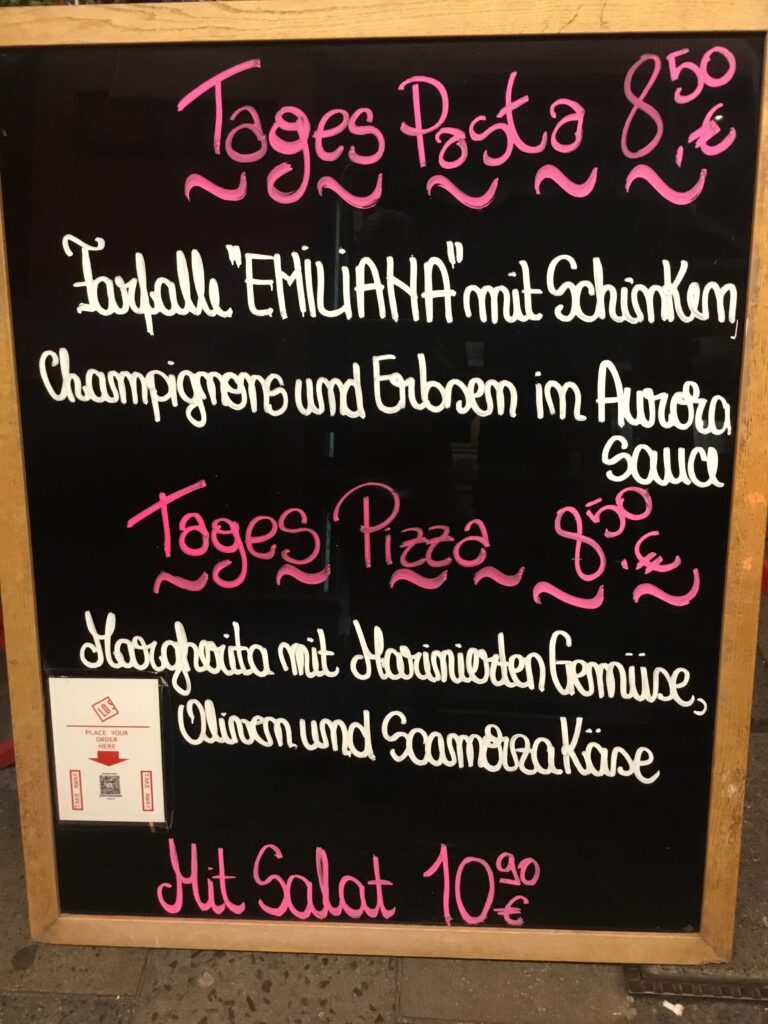 Tages Pasta 8,50 €
Farfalle "EMILIANA" mit Schinken,
Champignons und Erbsen in Aurora
Sauce
Tages Pizza 8,50 €
Margherita mit Marinierten Gemüse,
Oliven und Scamorza Käse
PLACE YOUR
ORDER
HERE
TAKE AWAY
Mit Salat 10 90 €